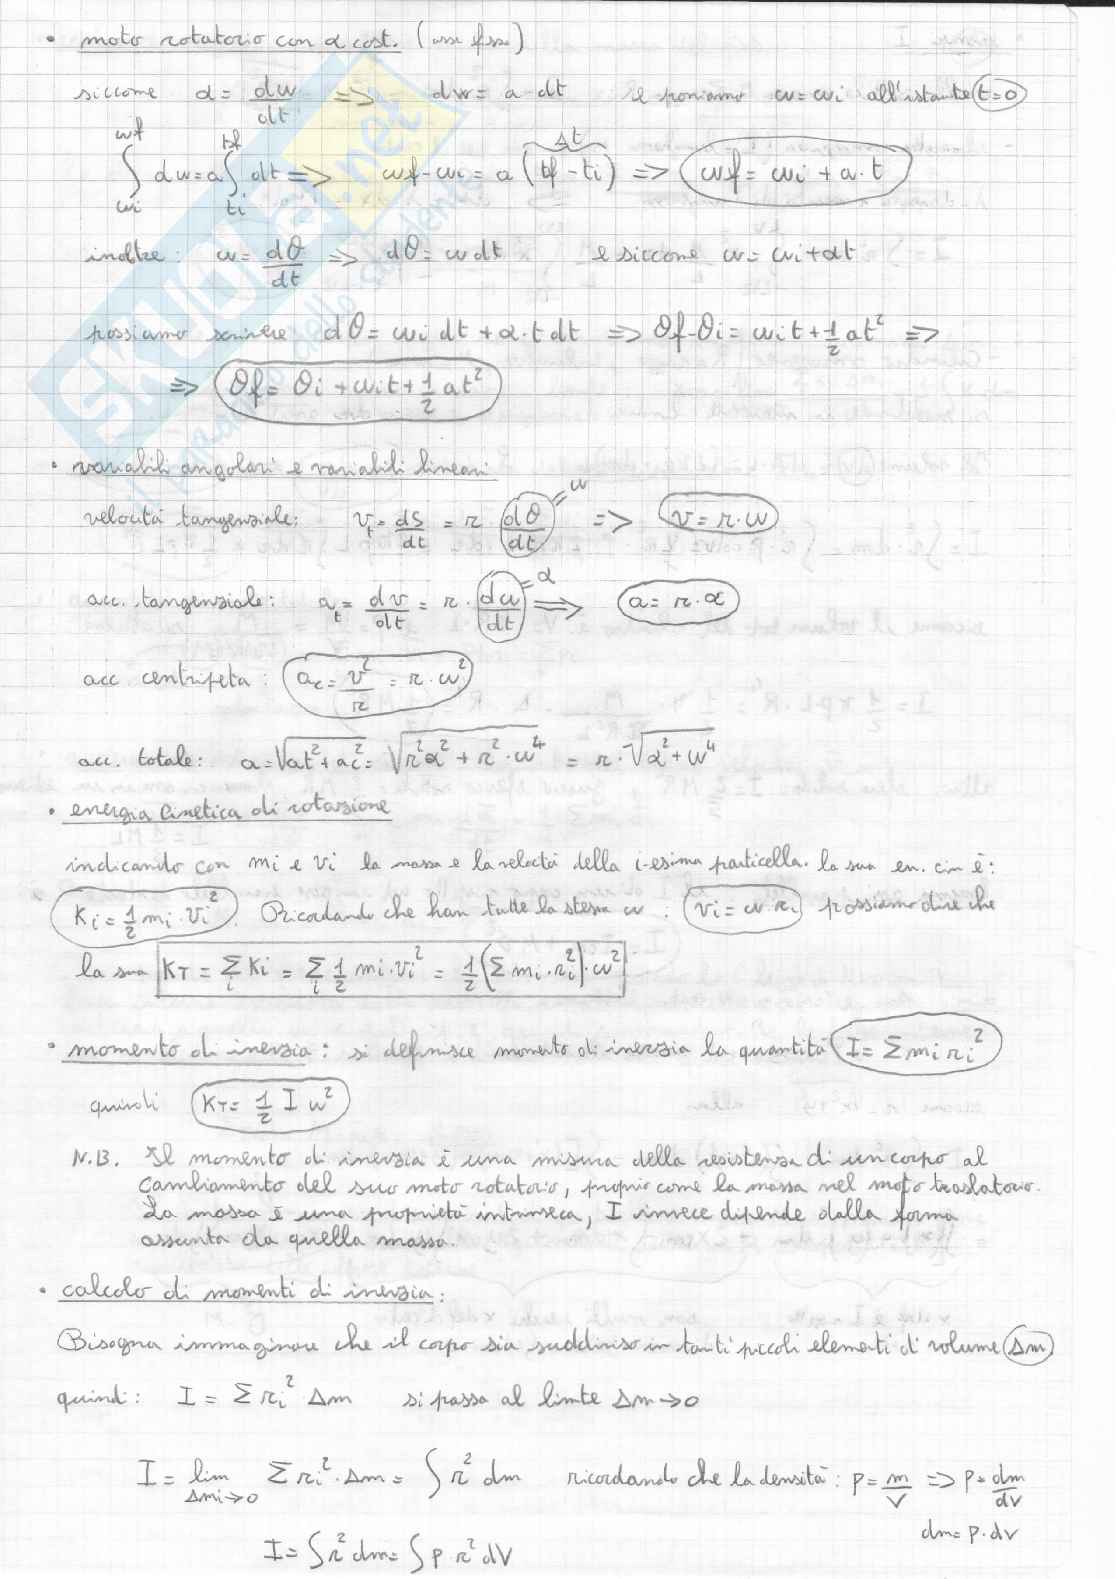 • moto rotatorio con α cost. (asse fisso)
siccome α = dω/dt => dω = α · dt se poniamo ω = ωi all'istante t=0
∫_ωi^ωf dω = α ∫_ti^tf dt => ωf - ωi = α (tf - ti) => ωf = ωi + α · t
Δt
inoltre: ω = dθ/dt => dθ = ω dt e siccome ω = ωi + αt
possiamo scrivere dθ = ωi dt + α · t dt => θf - θi = ωi t + 1/2 αt² =>
=> θf = θi + ωi t + 1/2 αt²
• variabili angolari e variabili lineari
velocità tangenziale: v_t = ds/dt = r dθ/dt = ω => v = r · ω
acc. tangenziale: a_t = dv/dt = r · dω/dt = α => a = r · α
acc. centripeta: a_c = v²/r = r · ω²
acc. totale: a = √(at² + ac²) = √(r²α² + r² · ω⁴) = r · √(α² + ω⁴)
• energia cinetica di rotazione
indicando con mi e vi la massa e la velocità della i-esima particella. la sua en. cin è:
Ki = 1/2 mi · vi². Ricordando che han tutte la stessa ω : vi = ω · ri possiamo dire che
la sua K_T = Σ_i Ki = Σ_i 1/2 mi · vi² = 1/2 (Σ mi · ri²) · ω²
• momento di inerzia: si definisce momento di inerzia la quantità I = Σ mi ri²
quindi K_T = 1/2 I ω²
N.B. Il momento di inerzia è una misura della resistenza di un corpo al
cambiamento del suo moto rotatorio, proprio come la massa nel moto traslatorio.
La massa è una proprietà intrinseca, I invece dipende dalla forma
assunta da quella massa.
• calcolo di momenti di inerzia:
Bisogna immaginare che il corpo sia suddiviso in tanti piccoli elementi di volume Δm
quindi: I = Σ ri² Δm si passa al limite Δm→0
I = lim_Δmi→0 Σ ri² · Δm = ∫ r² dm ricordando che la densità: ρ = m/V => ρ = dm/dV
dm = ρ · dV
I = ∫ r² dm = ∫ ρ r² dV
SKUOLA.net